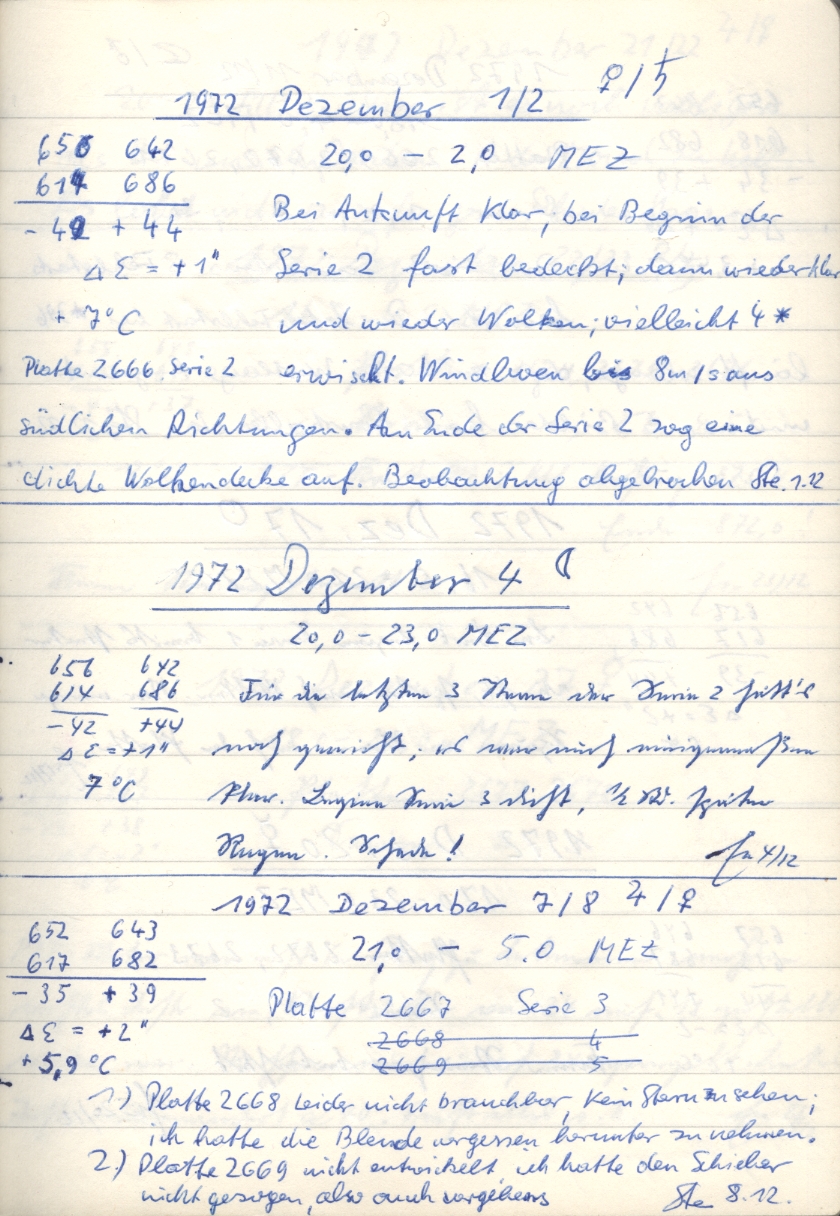 1972 Dezember 1/2 ♀/♄
656 642 20,0 – 2,0 MEZ
614 686
- 42 + 44 Bei Ankunft klar, bei Beginn der
Δ Ɛ = +1" Serie 2 fast bedeckt; dann wieder klar
+ 7°C und wieder Wolken; vielleicht 4 *
Platte 2666. Serie 2 erwischt. Windböen bis 8m/s aus
südlichen Richtungen. Am Ende der Serie 2 zog eine
dichte Wolkendecke auf. Beobachtung abgebrochen Ste. 1.12
1972 Dezember 4 ☾
20,0 – 23,0 MEZ
656 642
614 686 Für die letzten 3 Sterne der Serie 2 hätt's
-42 +44
Δ Ɛ = +1" noch gereicht; es war noch einigermaßen
7°C klar. Beginn Serie 3 dicht, ½ Std. später
Regen. Schade! 4/12
1972 Dezember 7/8 ♃/♀
652 643 21,0 – 5.0 MEZ
617 682
- 35 + 39 Platte 2667 Serie 3
Δ Ɛ = +2" 2668 4
+5,9°C 2669 5
1.) Platte 2668 leider nicht brauchbar, kein Stern zu sehen;
ich hatte die Blende vergessen herunter zu nehmen.
2.) Platte 2669 nicht entwickelt ich hatte den Schieber
nicht gezogen, also auch vergebens Ste 8.12.